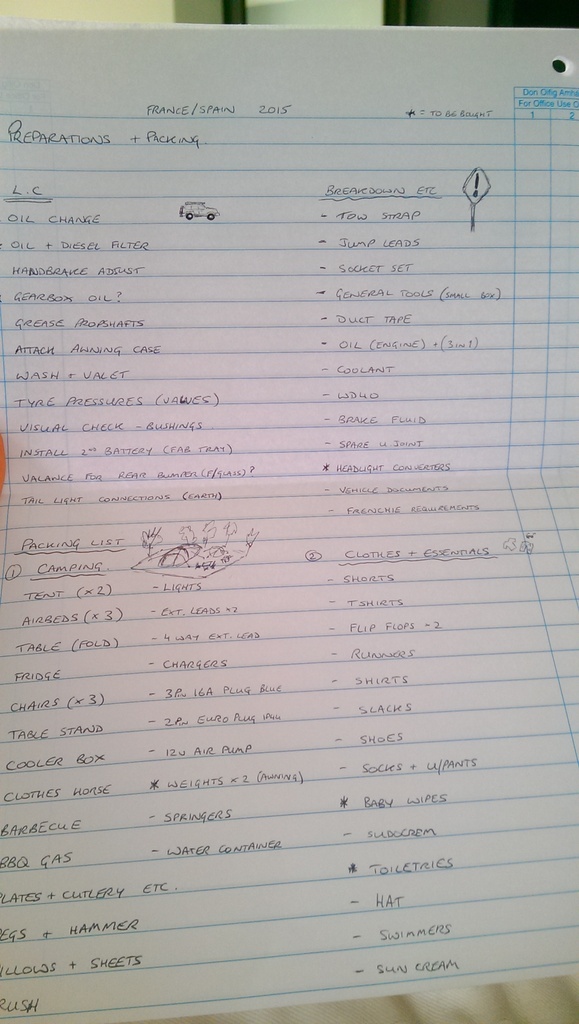 Don Oifig Amhá
For Office Use O
1 2
FRANCE/SPAIN 2015
* = TO BE BOUGHT
PREPARATIONS + PACKING.
L.C
OIL CHANGE
OIL + DIESEL FILTER
HANDBRAKE ADJUST
GEARBOX OIL?
GREASE PROPSHAFTS
ATTACH AWNING CASE
WASH + VALET
TYRE PRESSURES (VALVES)
VISUAL CHECK - BUSHINGS
INSTALL 2ND BATTERY (FAB TRAY)
VALANCE FOR REAR BUMPER (F/GLASS)?
TAIL LIGHT CONNECTIONS (EARTH)
BREAKDOWN ETC
!
- TOW STRAP
- JUMP LEADS
- SOCKET SET
- GENERAL TOOLS (SMALL BOX)
- DUCT TAPE
- OIL (ENGINE) + (3 IN 1)
- COOLANT
- WD40
- BRAKE FLUID
- SPARE U JOINT
* HEADLIGHT CONVERTERS
- VEHICLE DOCUMENTS
- FRENCHIE REQUIREMENTS
PACKING LIST
① CAMPING
TENT (x2)
AIRBEDS (x3)
TABLE (FOLD)
FRIDGE
CHAIRS (x3)
TABLE STAND
COOLER BOX
CLOTHES HORSE
BARBECUE
BBQ GAS
PLATES + CUTLERY ETC.
EGS + HAMMER
ILLOWS + SHEETS
RUSH
- LIGHTS
- EXT. LEADS x2
- 4 WAY EXT. LEAD
- CHARGERS
- 3PIN 16A PLUG BLUE
- 2PIN EURO PLUG
- 12V AIR PUMP
* WEIGHTS x2 (AWNING)
- SPRINGERS
- WATER CONTAINER
② CLOTHES + ESSENTIALS
- SHORTS
- TSHIRTS
- FLIP FLOPS - 2
- RUNNERS
- SHIRTS
- SLACKS
- SHOES
- SOCKS + U/PANTS
* BABY WIPES
- SUDOCREM
* TOILETRIES
- HAT
- SWIMMERS
- SUN CREAM